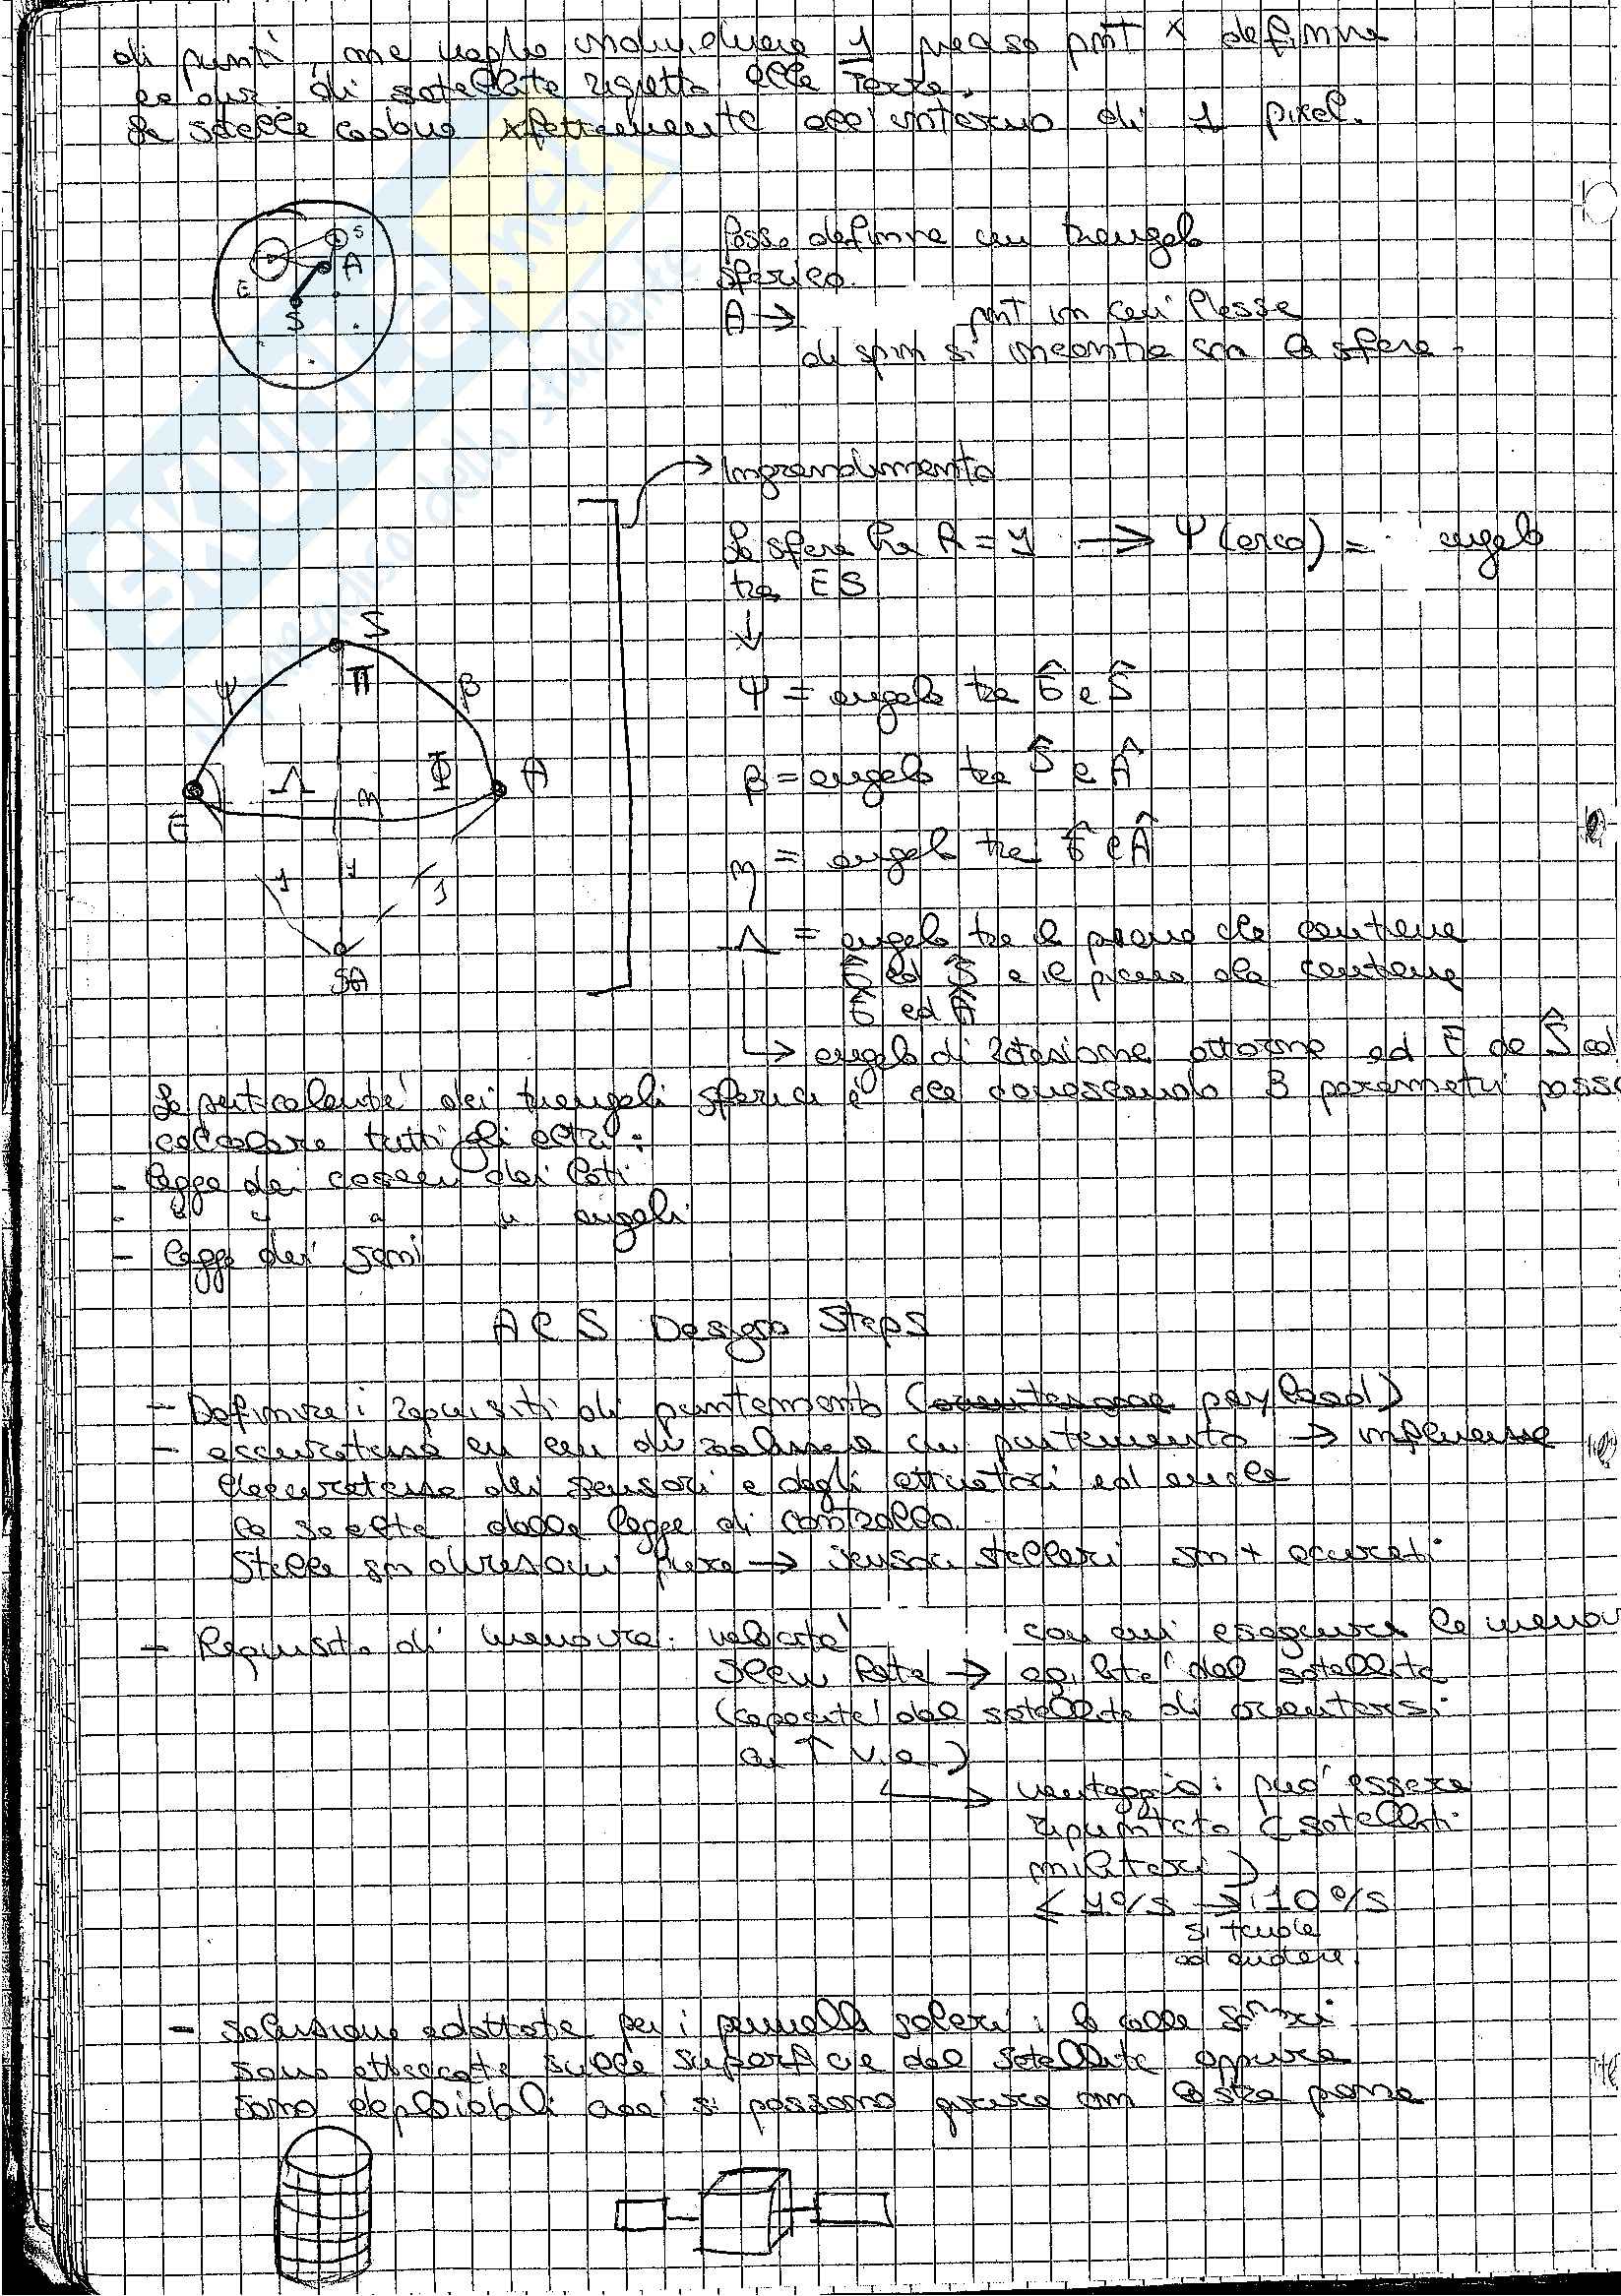 di punti, me voglio individuare 1 preciso pnt x definire
la dir. di satellite rispetto alla Terra.
La stella cade perfettamente all'interno di 1 pixel.
Posso definire un triangolo
sferico.
A → pnt in cui l'asse
di spin si incontra con la sfera.
S
A
E
S
Ingrandimento
La sfera ha R = 1 → Ψ (arco) = angolo
tra ES
↓
Ψ = angolo tra Ê e Ŝ
β = angolo tra Ŝ e Â
η = angolo tra Ê e Â
Λ = angolo tra il piano che contiene
Ê ed Ŝ e il piano che contiene
Ê ed Â
↳ angolo di rotazione attorno ad E da Ŝ ad
S
Ψ Π β
E Λ η Φ A
1 1 1
SA
La particolarità dei triangoli sferici è che conoscendo 3 parametri posso
calcolare tutti gli altri:
- legge dei coseni dei lati
- " " " " angoli
- legge dei seni
ACS Design Steps
- Definire i requisiti di puntamento (orientazione payload)
- accuratezza con cui di realizzare un puntamento → influenza
l'accuratezza dei sensori e degli attuatori ed anche
la scelta della legge di controllo.
Stelle sn direzioni fisse → sensori stellari sn + accurati
- Requisito di manovra: velocità con cui eseguire la manov
Slew Rate → agilità del satellite
(capacità del satellite di orientarsi
a ↑ v.a.)
↳ vantaggio: può essere
ripuntato (satelliti
militari)
< 1°/s → 10°/s
si tende
ad andare.
- Soluzione adottata per i pannelli solari: le celle solari
sono attaccate sulla superficie del satellite oppure
sono deploiabili così si possono girare